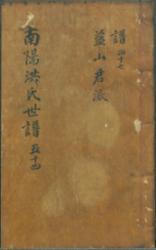 譜 四十七
益山君派
南陽洪氏世譜 五十四